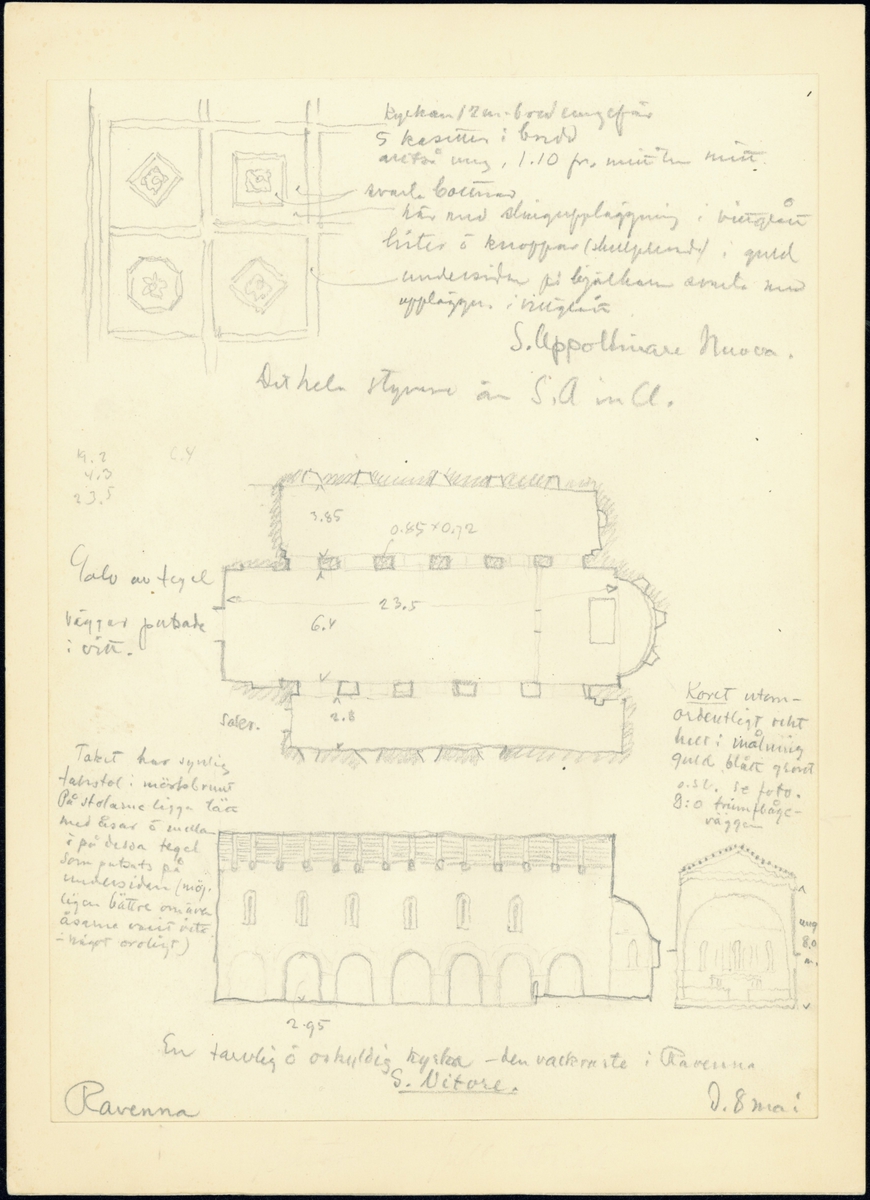 Kyrkan 12 m. bred ungefär
5 kasetter i bredd
alltså ung. 1.10 fr. mitt till mitt.
svarta bottnar
här med slinguppläggning i vittgrått
lister ö knoppar (skulpterade) i guld
undersidan på bjälkarna svarta med
uppläggn. i vittgrått
S. Appollinare Nuova.
Det hela styvare än S. A in Cl.
19.2
4.3
23.5
6.4
3.85
0.85 x 0.72
Golv av tegel
väggar putsade
i vitt.
23.5
6.4
2.8
Saker.
Koret utom-
ordentligt rikt
helt i målning
guld blått grönt
o.s.v. se foto.
D:o triumfbåge-
väggen
Taket har synlig
takstol i mörkbrunt
På stolarne ligga tätt
med åsar ö mellan
i på dessa tegel
som putsats på
undersidan (möj-
ligen bättre om även
åsarna varit vita
- något oroligt)
ung
8.0
m.
2.95
En tarvlig ö oskyldig kyrka - den vackraste i Ravenna
S. Vitore.
Ravenna
D. 8 maj